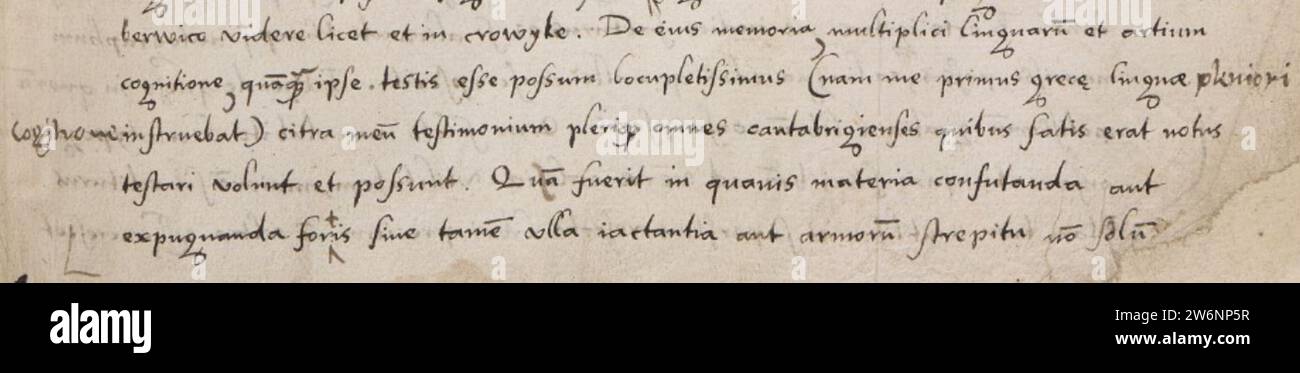 berwico videre licet et in crowyke. De eius memoria, multiplici linguarū et artium
cognitione, quāquā ipse testis esse possum locupletissimus (nam me primus grecę linguæ pleniori
cognitione instruebat) citra meū testimonium pleriq; omnes cantabrigienses quibus satis erat notus
testari volunt et possunt. Quā fuerit in quavis materia confutanda aut
expugnanda fortis sine tamē ulla iactantia aut armorū strepitu nō solū
alamy
Image ID: W6NP5R
www.alamy.com